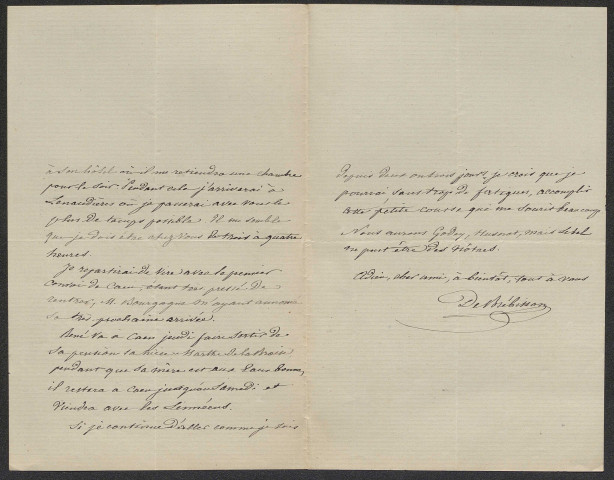 à son hôtel où il me retiendra une chambre
pour le soir. Pendant cela j'arriverai à
où je passerai avec vous le
plus de temps possible. Il me semble
que je dois être chez vous de trois à quatre
heures.
Je repartirai de Vire avec le premier
convoi de Caen, étant très pressé de
rentrer, M. Bourgogne m'ayant annoncé
sa très prochaine arrivée.
René va à Caen jeudi faire sortir de
sa pension sa nièce Marthe de la
pendant que sa mère est aux Eaux bonnes,
il restera à Caen jusqu'au Samedi et
viendra avec les Linnéens.
Si je continue d'aller comme je vais
depuis deux ou trois jours, je crois que je
pourrai sans trop de fatigues, accomplir
cette petite course qui me sourit beaucoup.
Nous aurons Godey, Husnot, mais Lebel
ne peut être des nôtres.
Adieu, cher ami, à bientôt, tout à vous
De Brébisson